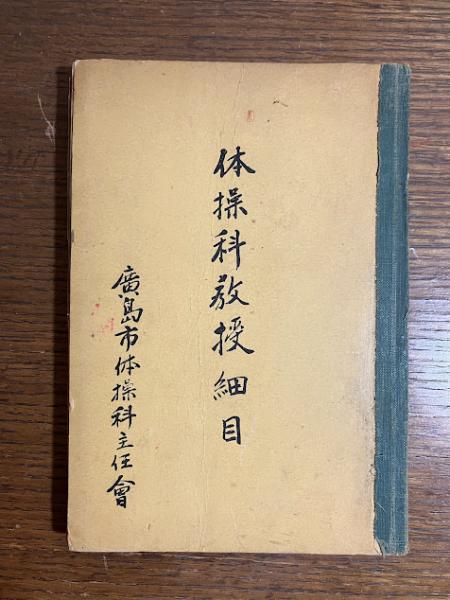 体操科教授細目
廣島市体操科主任會